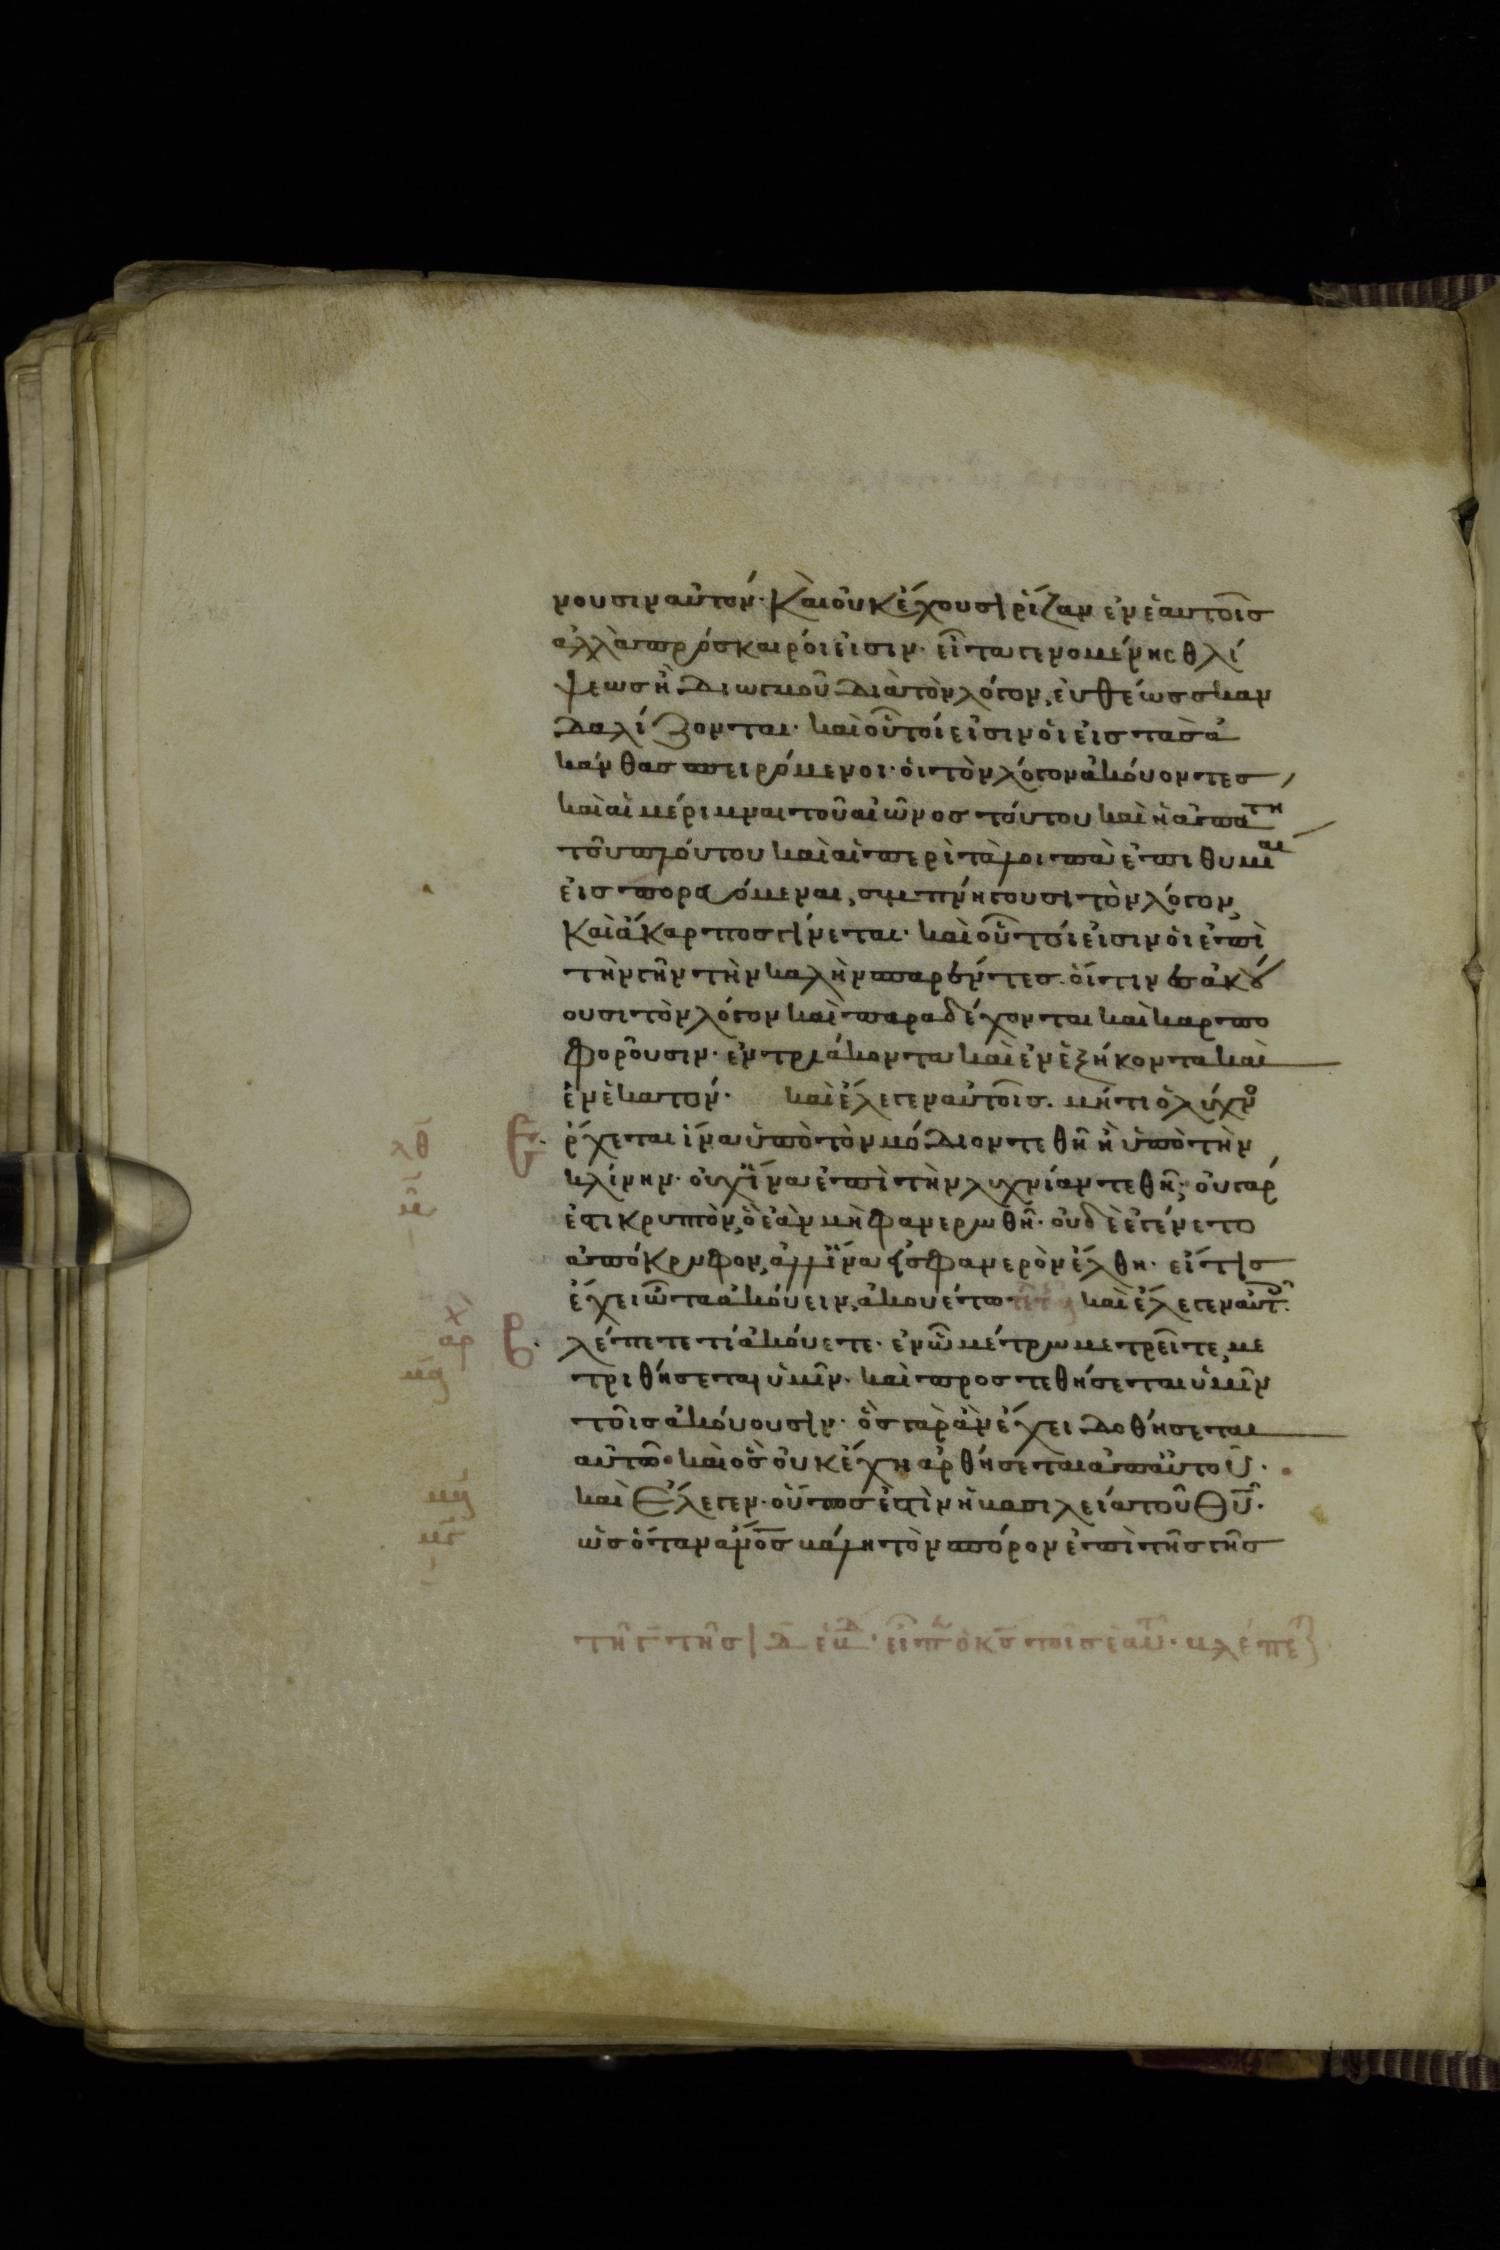 νουσιν αὐτόν· Καὶ οὐκ ἔχουσι ῥίζαν ἐν ἑαυτοῖς
ἀλλὰ πρόσκαιροί εἰσιν· εἶτα γενομένης θλί
ψεως ἢ διωγμοῦ διὰ τὸν λόγον, εὐθέως σκαν
δαλίζονται· καὶ οὗτοί εἰσιν οἱ εἰς τὰς ἀ
κάνθας σπειρόμενοι· οἱ τὸν λόγον ἀκούοντες,
καὶ αἱ μέριμναι τοῦ αἰῶνος τούτου καὶ ἡ ἀπάτη
τοῦ πλούτου καὶ αἱ περὶ τὰ λοιπὰ ἐπιθυμίαι
εἰσπορευόμεναι, συμπνήγουσι τὸν λόγον,
Καὶ ἄκαρπος γίνεται· καὶ οὗτοί εἰσιν οἱ ἐπὶ
τὴν γῆν τὴν καλὴν σπαρέντες· οἵτινες ἀκού
ουσι τὸν λόγον καὶ παραδέχονται καὶ καρπο
φοροῦσιν· ἐν τριάκοντα καὶ ἐν ἑξήκοντα καὶ
ἐν ἑκατόν· καὶ ἔλεγεν αὐτοῖς· μήτι ὁ λύχνο
Ἔρχεται ἵνα ὑπὸ τὸν μόδιον τεθῆ ἢ ὑπὸ τὴν
κλίνην· οὐχ ἵνα ἐπὶ τὴν λυχνίαν τεθῆ; οὐ γάρ
ἐστι κρυπτὸν, ὃ ἐὰν μὴ φανερωθῆ· οὐδὲ ἐγένετο
ἀπόκρυφον, ἀλλ' ἵνα εἰς φανερὸν ἔλθη· εἴ τις
ἔχει ὦτα ἀκούειν, ἀκουέτω· καὶ ἔλεγεν αὐτοῖς·
Βλέπετε τί ἀκούετε· ἐν ᾧ μέτρω μετρεῖτε, με
τριθήσεται ὑμῖν· καὶ προστεθήσεται ὑμῖν
τοῖς ἀκούουσιν· ὃς γὰρ ἂν ἔχει δοθήσεται
αὐτῶ· καὶ ὃς οὐκ ἔχη ἀρθήσεται ἀπ' αὐτοῦ·
καὶ Ἔλεγεν· οὕτως ἐστὶν ἡ βασιλεία τοῦ Θ̅Υ̅·
ὡς ὅταν ἄν̅ο̅ς̅ βάλη τὸν σπόρον ἐπὶ τῆς γῆς